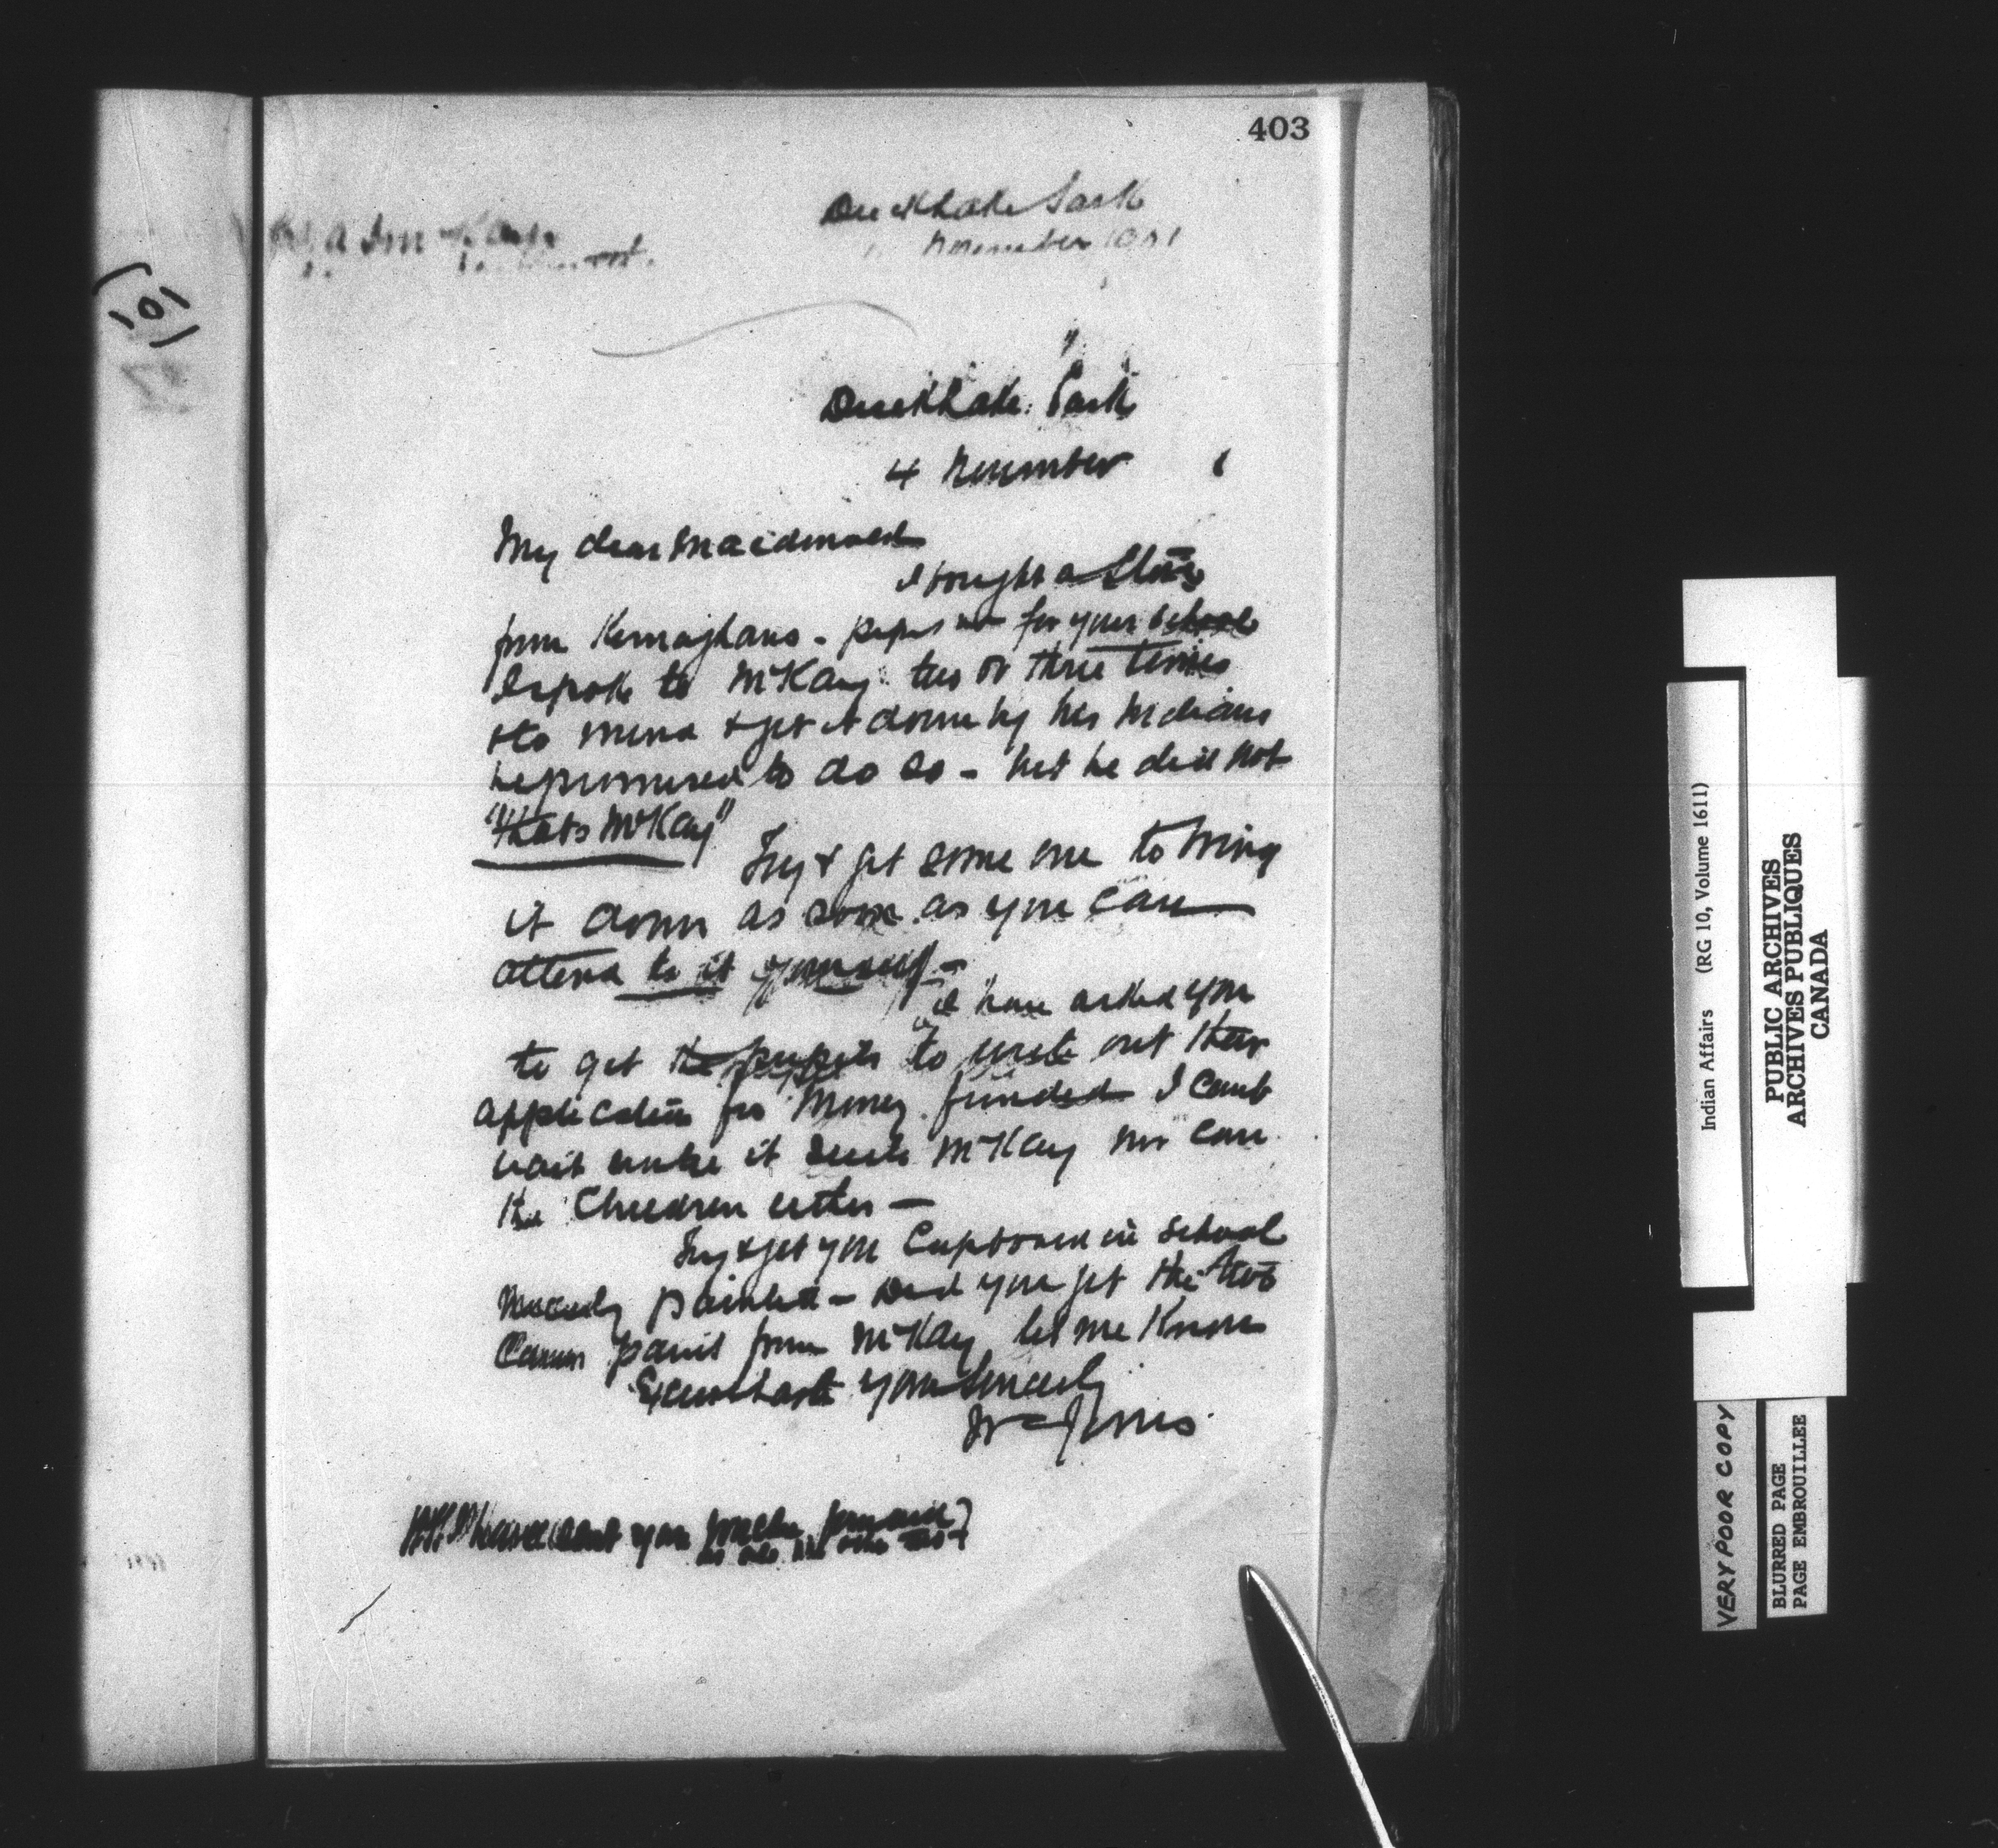 403
Duck Lake Sask
November
Duck Lake. Sask
4 November
My dear Macdonald
I bought a Stove
from Kernaghans - pipes for your School
I spoke to McKay two or three times
to & get it down by his Indians
he promised to do so - but he did not
"thats McKay"
Try & get some one to bring
it down as soon as you can
attend to it yourself -
I have asked you
to get the pupils to write out their
application for Money funded I cant
wait it suits McKay nor can
the Children either -
Try & get your Cupboard in School
nicely painted - Did you get the two
Cans paint from McKay let me know
Excuse haste yours Sincerely
(10)
Indian Affairs (RG 10, Volume 1611)
PUBLIC ARCHIVES
ARCHIVES PUBLIQUES
CANADA
VERY POOR COPY
BLURRED PAGE
PAGE EMBROUILLEE